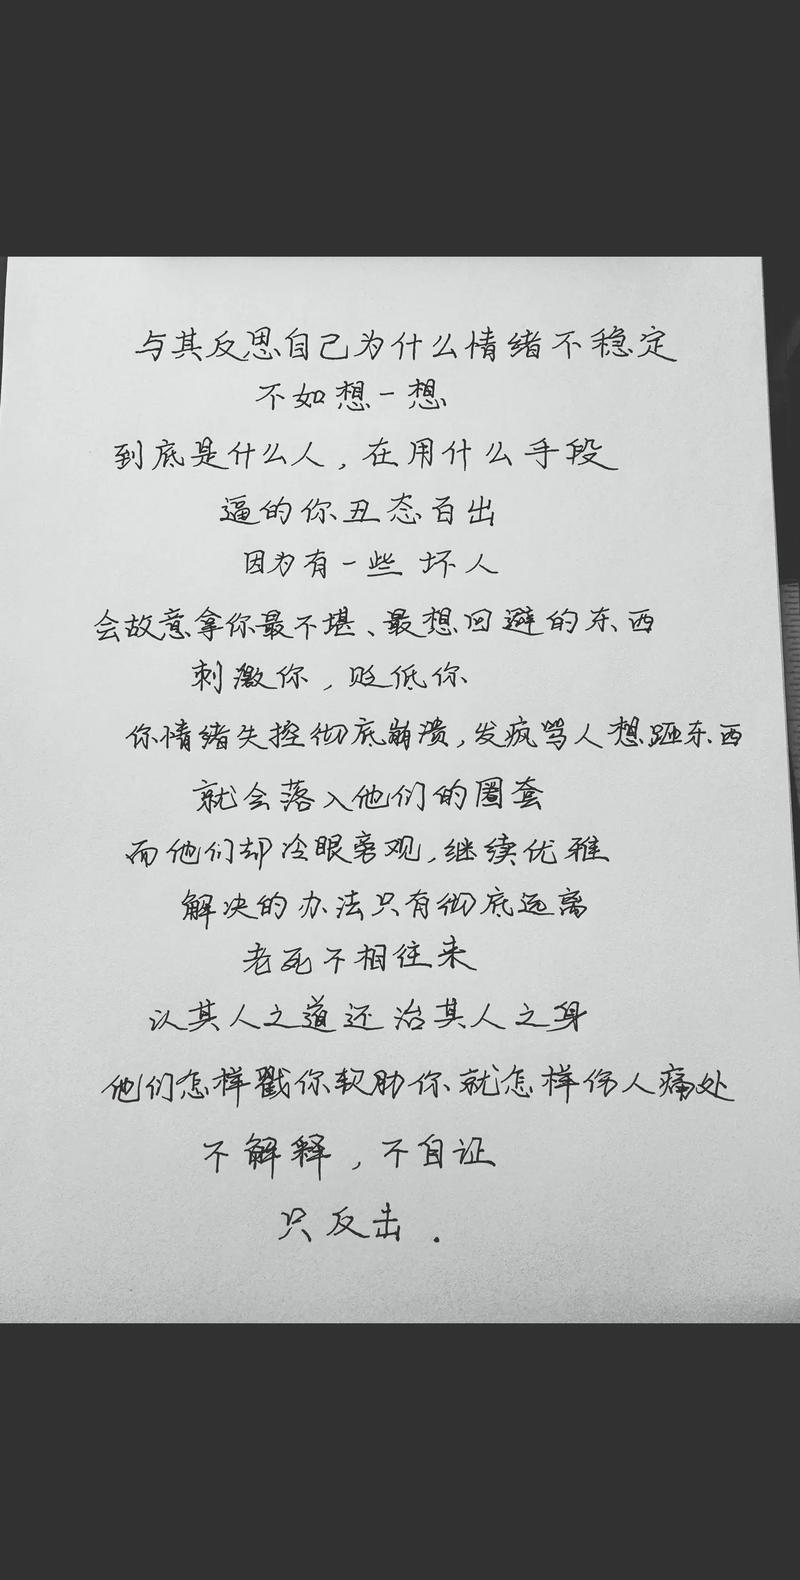 与其反思自己为什么情绪不稳定
不如想一想
到底是什么人，在用什么手段
逼的你丑态百出
因为有一些坏人
会故意拿你最不堪、最想回避的东西
刺激你，贬低你
你情绪失控彻底崩溃，发疯骂人想砸东西
就会落入他们的圈套
而他们却冷眼旁观，继续优雅
解决的办法只有彻底远离
老死不相往来
以其人之道还治其人之身
他们怎样戳你软肋你就怎样伤人痛处
不解释，不自证
只反击．